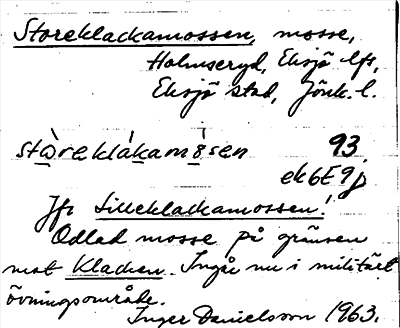 Storeklackamossen, mosse,
Holmseryd, Eksjö lfs,
Eksjö stad, Jönk. l.
stòreklákamȯ́sen 93.
ek6E9j
Jfr Lilleklackamossen!
Odlad mosse på gränsen
mot Klacken. Ingår nu i militärt
övningsområde.
Inger Danielsson 1963.